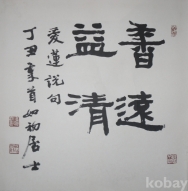 香遠
益清
愛蓮說句
丁丑首如初居士
kobay